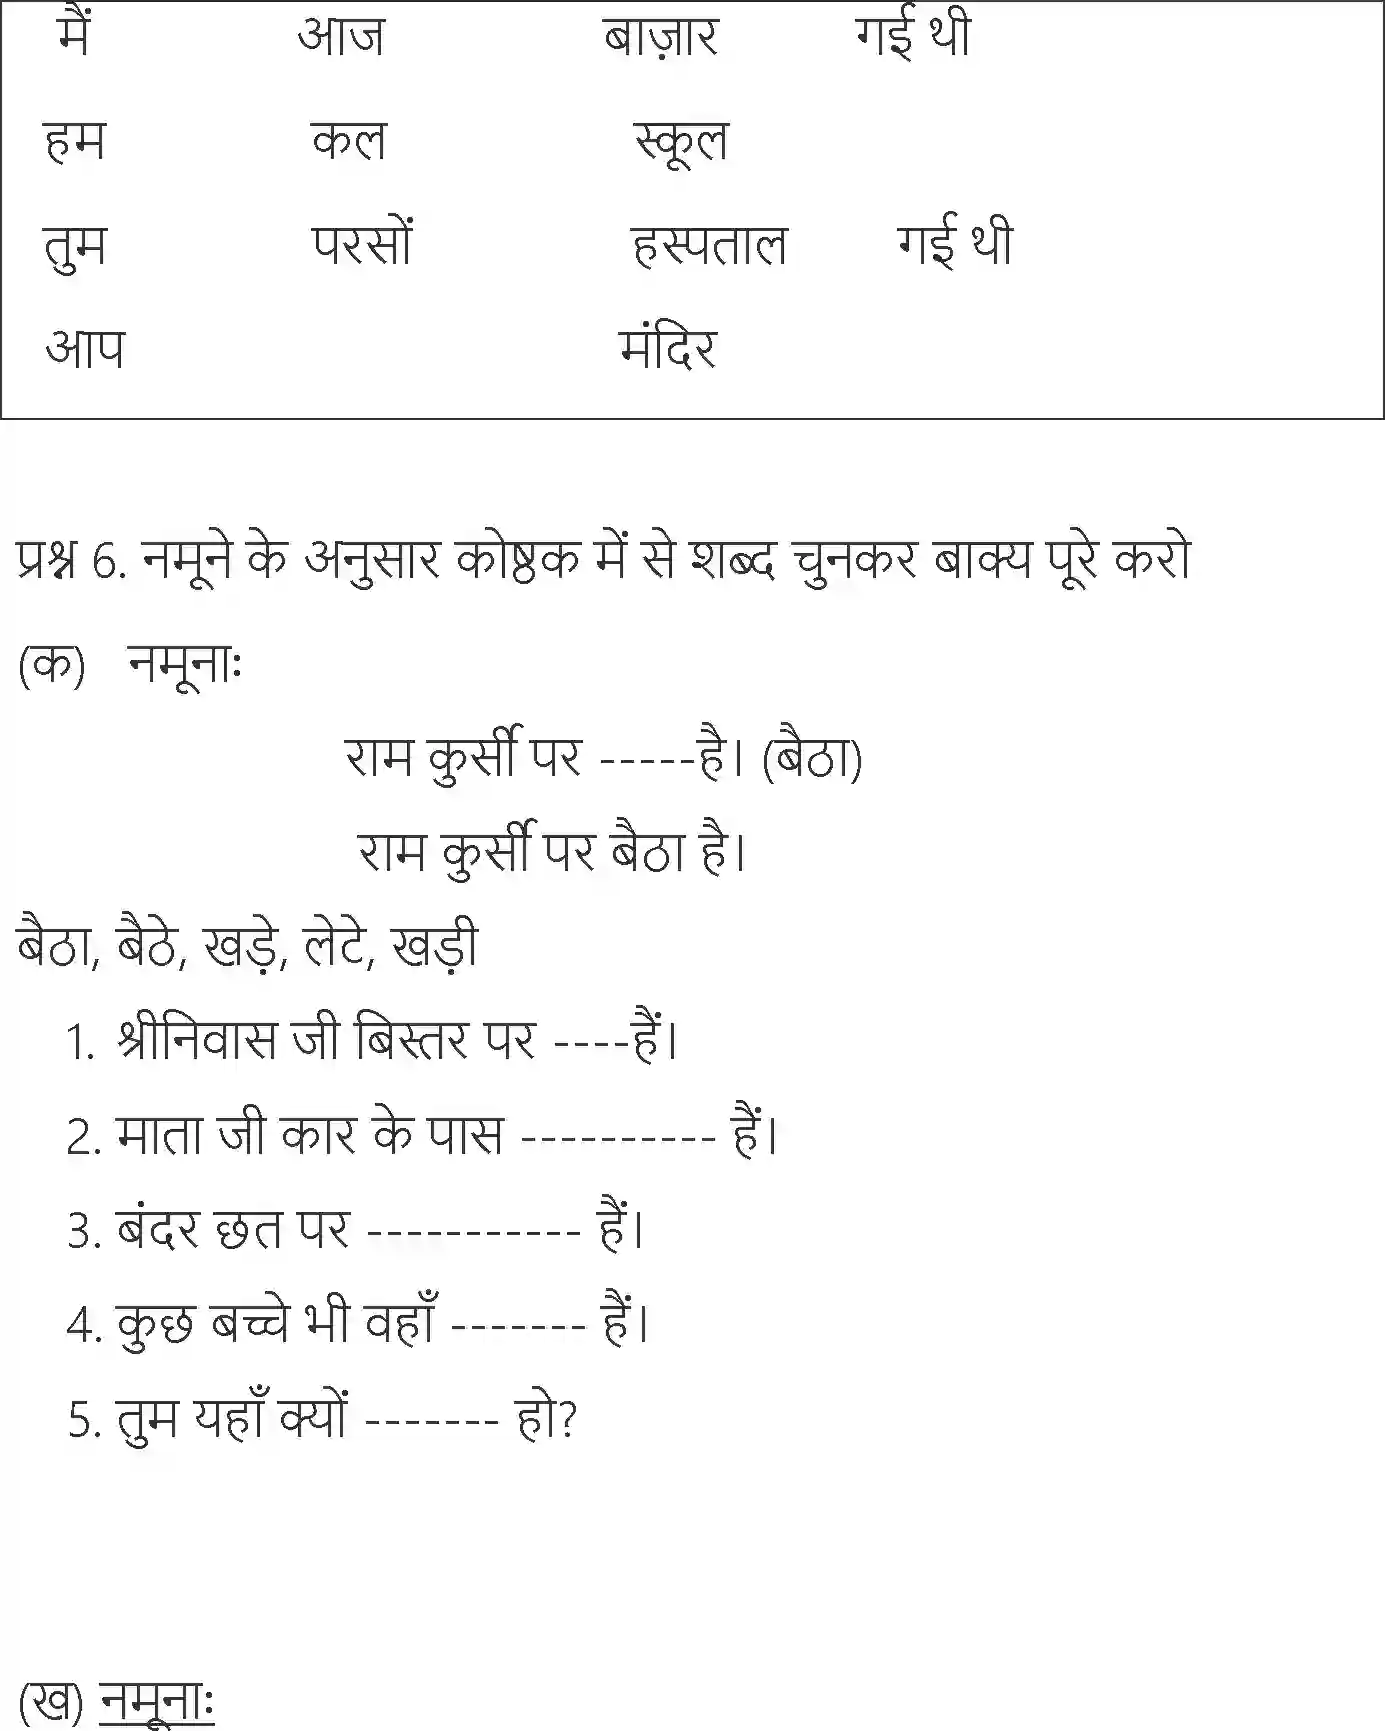 मैं आज बाज़ार गई थी
हम कल स्कूल
तुम परसों हस्पताल गई थी
आप मंदिर
प्रश्न 6. नमूने के अनुसार कोष्ठक में से शब्द चुनकर बाक्य पूरे करो
(क) नमूनाः
राम कुर्सी पर -----है। (बैठा)
राम कुर्सी पर बैठा है।
बैठा, बैठे, खड़े, लेटे, खड़ी
1. श्रीनिवास जी बिस्तर पर ----हैं।
2. माता जी कार के पास ---------- हैं।
3. बंदर छत पर ----------- हैं।
4. कुछ बच्चे भी वहाँ ------- हैं।
5. तुम यहाँ क्यों ------- हो?
(ख) नमूनाः